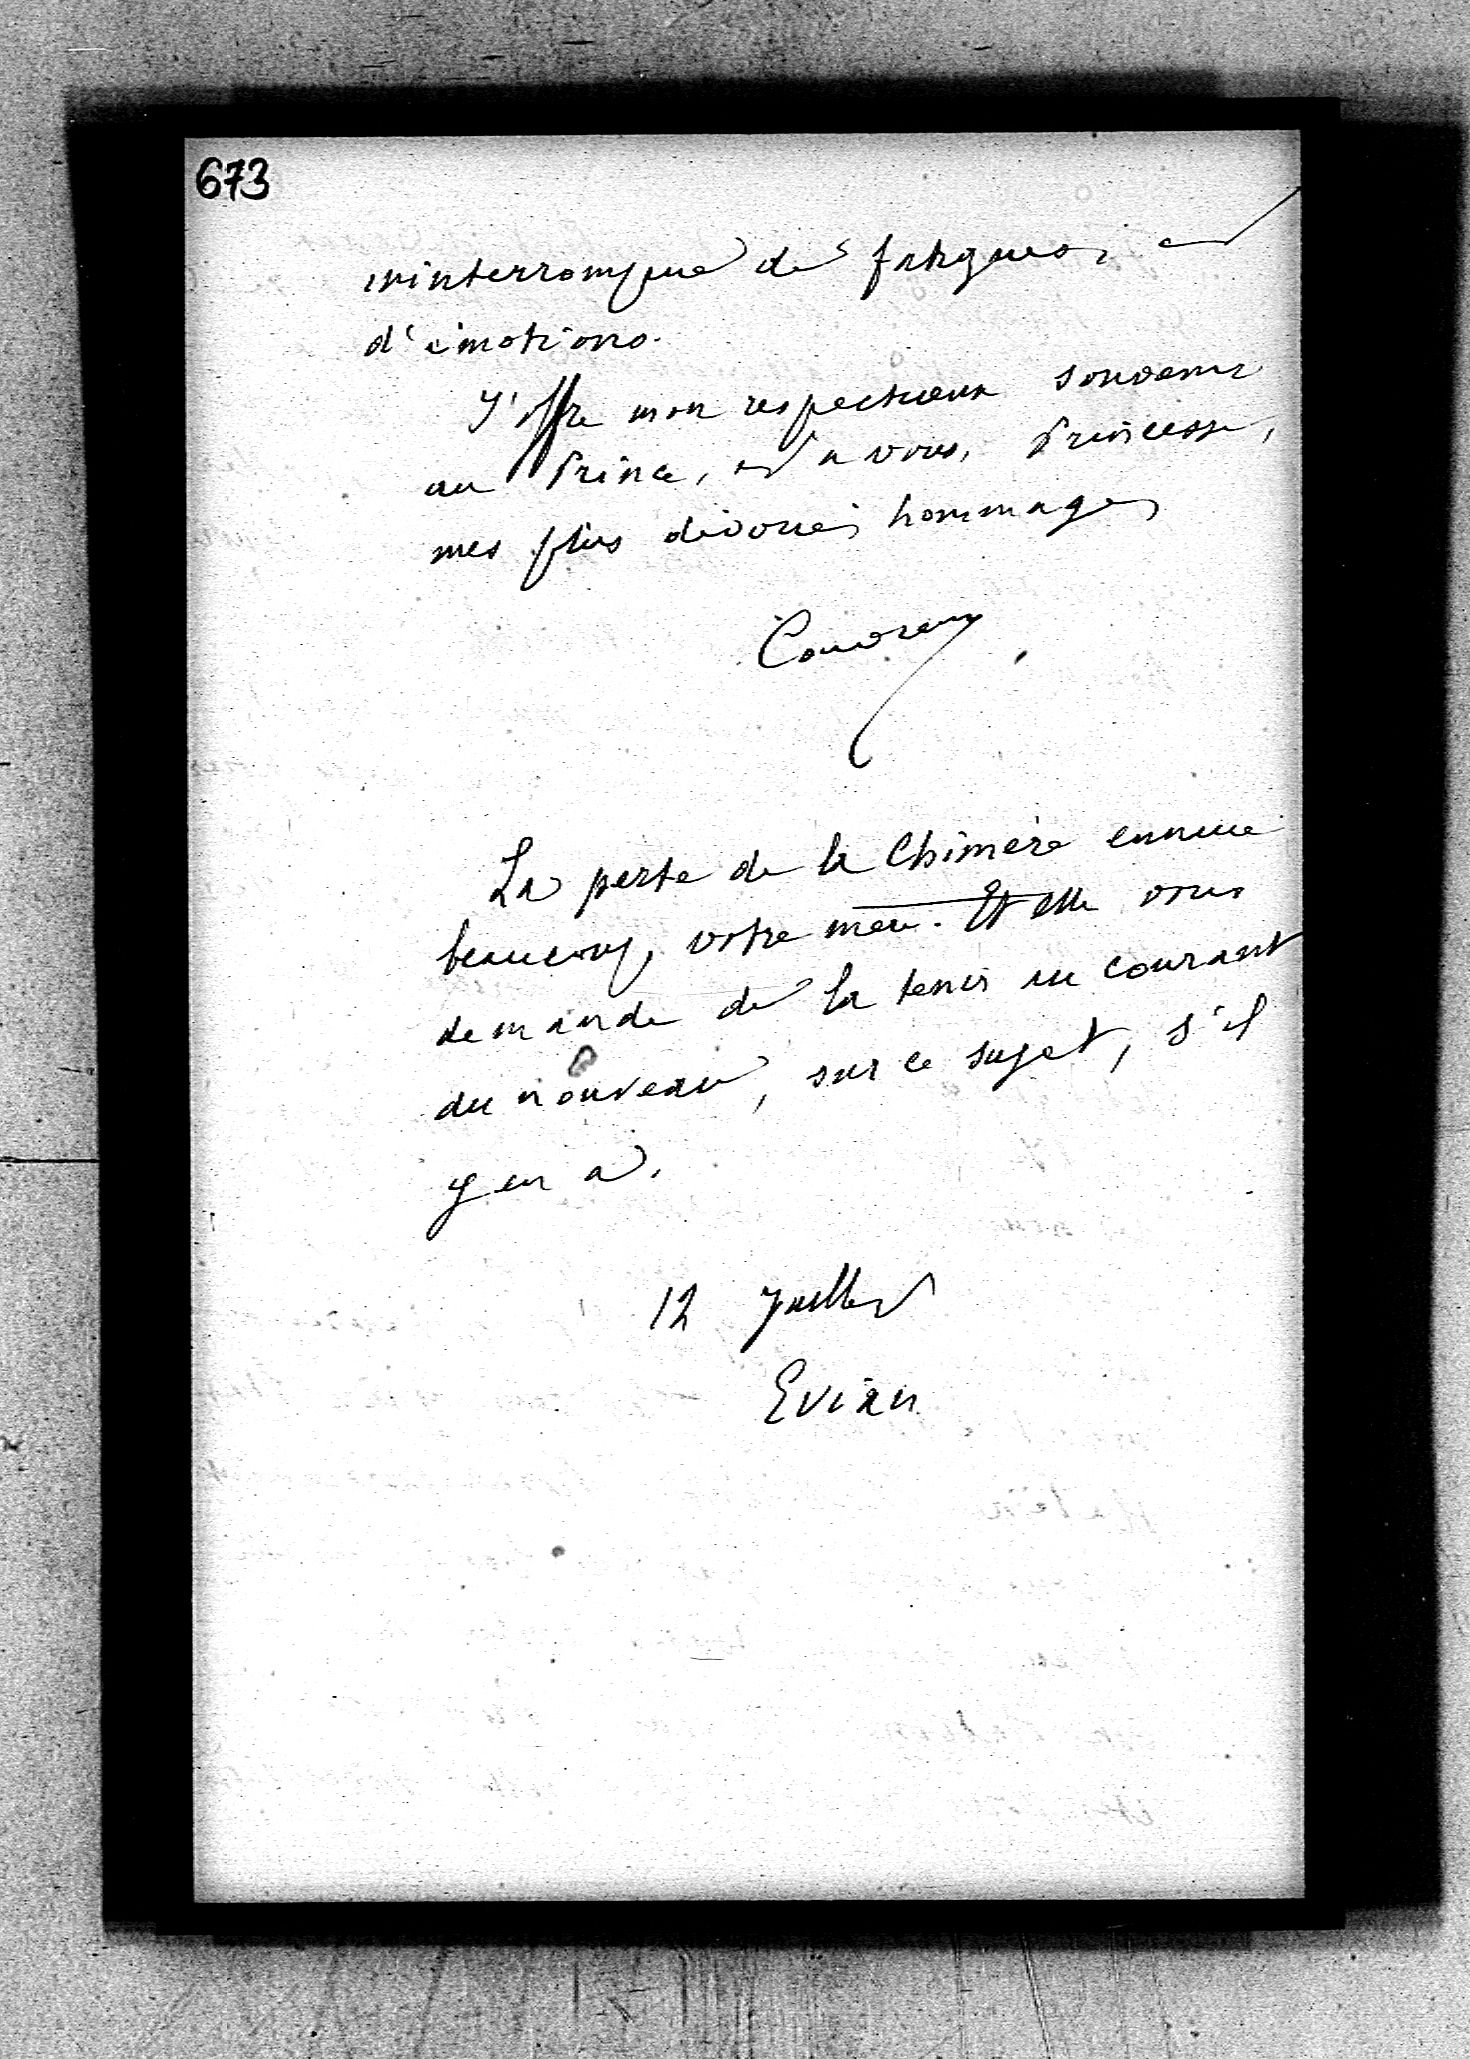 673
ininterrompue de fatigues, et
d'émotions.
J'offre mon respectueux souvenir
au Prince, et a vous, Princesse,
mes plus dévoués hommages
La perte de la Chimère ennuie
beaucoup, votre mère. Et elle vous
demande de la tenir au courant
du nouveau, sur ce sujet, s'il
y en a.
12 Juillet
Evian